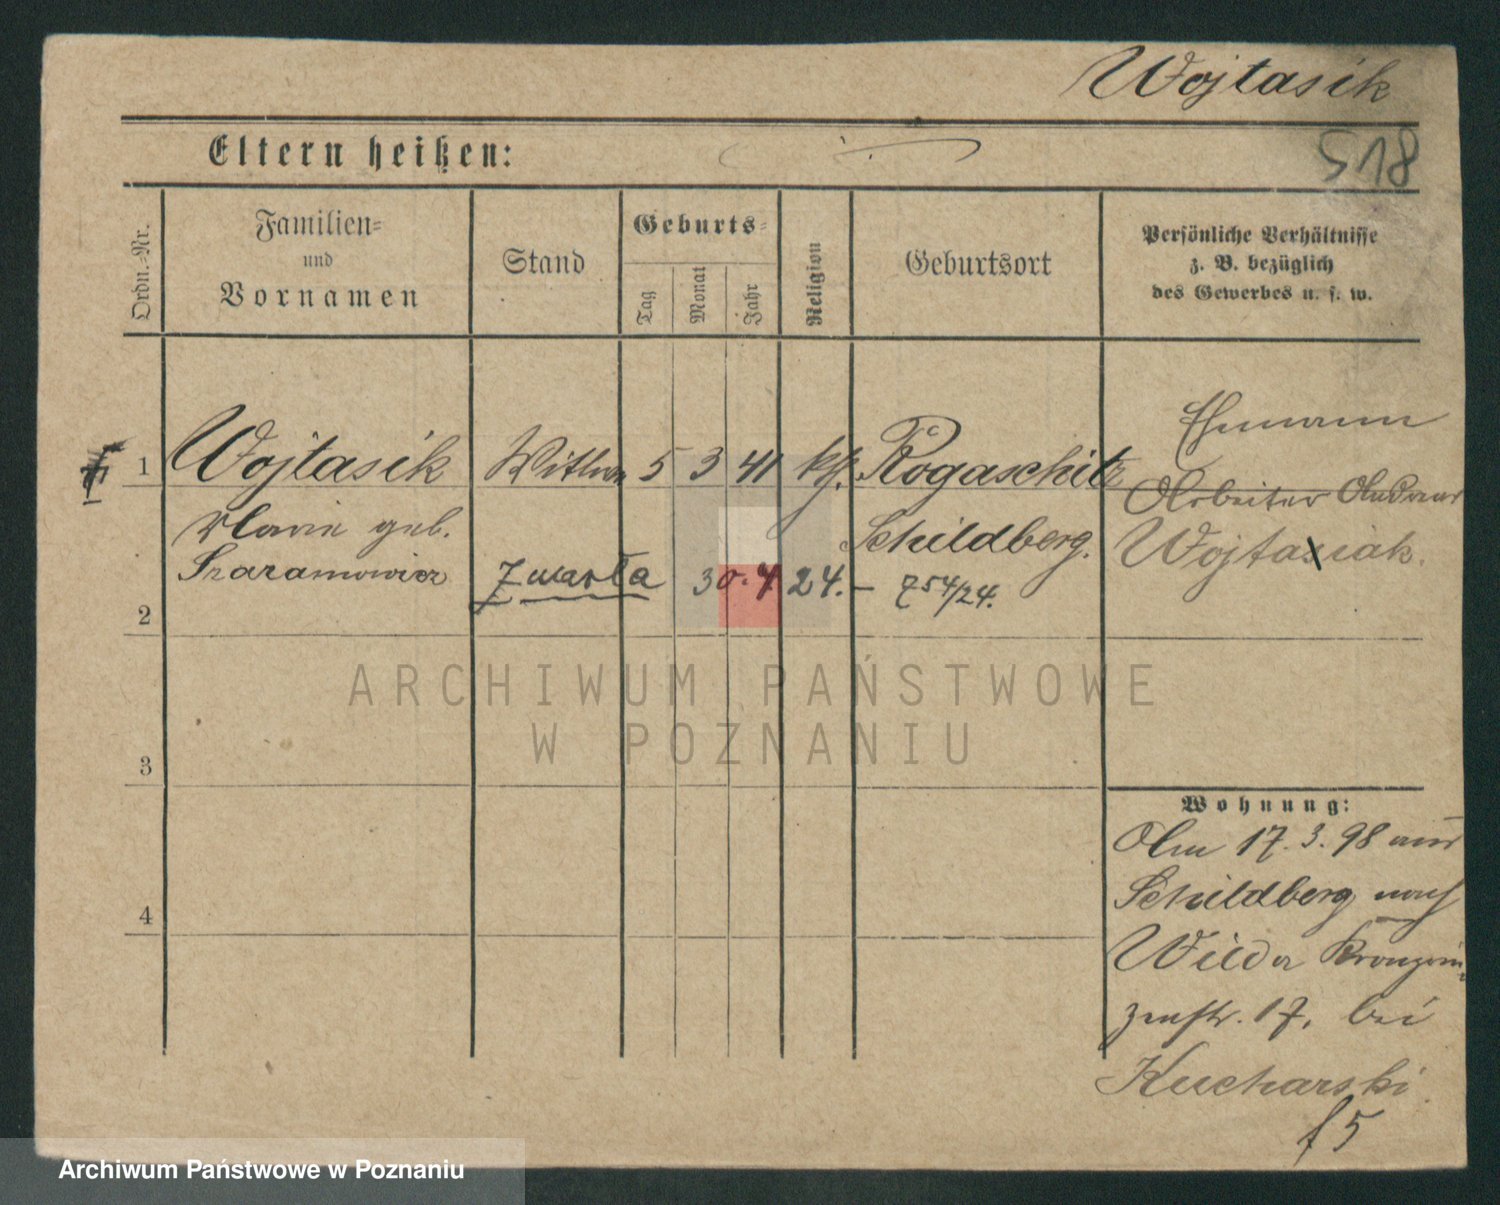 Wojtasik
518
Eltern heißen:
Ordn.-Nr.
Familien-
und
Vornamen
Stand
Geburts-
Tag
Monat
Jahr
Religion
Geburtsort
Persönliche Verhältnisse
z. B. bezüglich
des Gewerbes u. s. w.
1
Wojtasik
Witwe
5 3 41
kth.
Rogaschitz
Schildberg.
Marie geb.
Szaramowicz
Zmarła 30.7.24. – 754/24.
Ehemann
Arbeiter Andreas
Wojtasiak.
2
3
4
Wohnung:
Am 17.3.98 aus
Schildberg nach
Wilda Kronprin-
zenstr. 17, bei
Kucharski
f5
ARCHIWUM PAŃSTWOWE
W POZNANIU
Archiwum Państwowe w Poznaniu